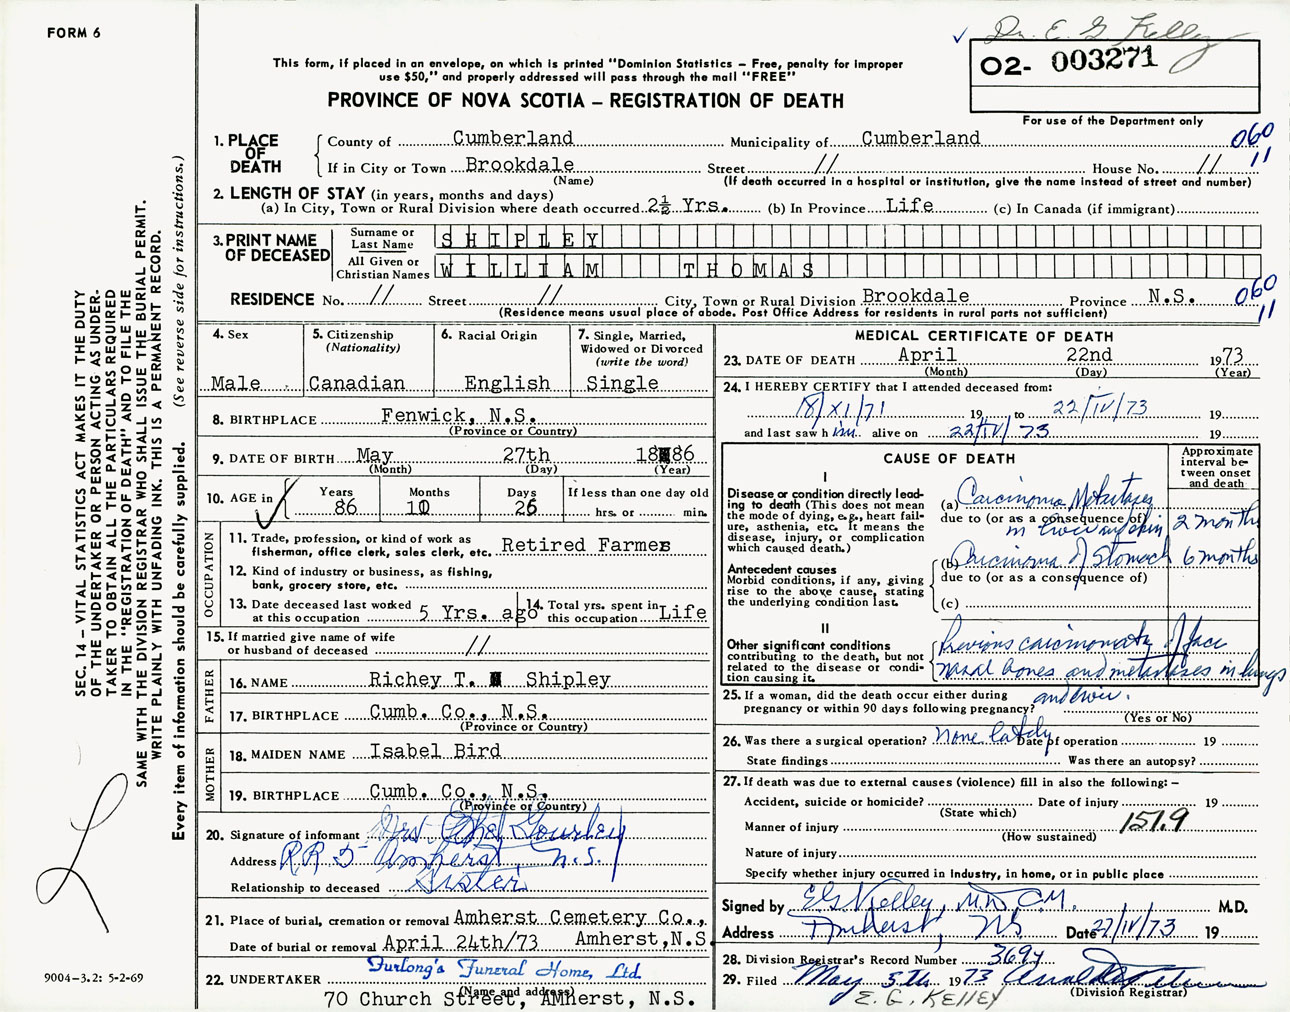 FORM 6
Dr. E. G. Kelley
This form, if placed in an envelope, on which is printed "Dominion Statistics – Free, penalty for improper
use $50," and properly addressed will pass through the mail "FREE"
02- 003271
PROVINCE OF NOVA SCOTIA – REGISTRATION OF DEATH
For use of the Department only
1. PLACE OF DEATH
County of Cumberland Municipality of Cumberland 060
If in City or Town Brookdale Street // House No. // 11
(Name) (If death occurred in a hospital or institution, give the name instead of street and number)
2. LENGTH OF STAY (in years, months and days)
(a) In City, Town or Rural Division where death occurred 2½ Yrs. (b) In Province Life (c) In Canada (if immigrant)
3. PRINT NAME OF DECEASED
Surname or Last Name SHIPLEY
All Given or Christian Names WILLIAM THOMAS
RESIDENCE No. // Street // City, Town or Rural Division Brookdale Province N.S. 060
(Residence means usual place of abode. Post Office Address for residents in rural parts not sufficient) 11
SEC. 14 – VITAL STATISTICS ACT MAKES IT THE DUTY
OF THE UNDERTAKER OR PERSON ACTING AS UNDER-
TAKER TO OBTAIN ALL THE PARTICULARS REQUIRED
IN THE "REGISTRATION OF DEATH" AND TO FILE THE
SAME WITH THE DIVISION REGISTRAR WHO SHALL ISSUE THE BURIAL PERMIT.
WRITE PLAINLY WITH UNFADING INK. THIS IS A PERMANENT RECORD.
Every item of information should be carefully supplied. (See reverse side for instructions.)
4. Sex
Male
5. Citizenship
(Nationality)
Canadian
6. Racial Origin
English
7. Single, Married,
Widowed or Divorced
(write the word)
Single
8. BIRTHPLACE Fenwick, N.S.
(Province or Country)
9. DATE OF BIRTH May 27th 1886
(Month) (Day) (Year)
10. AGE in Years Months Days If less than one day old
86 10 26 hrs. or min.
OCCUPATION
11. Trade, profession, or kind of work as
fisherman, office clerk, sales clerk, etc. Retired Farmer
12. Kind of industry or business, as fishing,
bank, grocery store, etc.
13. Date deceased last worked
at this occupation 5 Yrs. ago
14. Total yrs. spent in
this occupation Life
15. If married give name of wife
or husband of deceased //
FATHER
16. NAME Richey T. Shipley
17. BIRTHPLACE Cumb. Co., N.S.
(Province or Country)
MOTHER
18. MAIDEN NAME Isabel Bird
19. BIRTHPLACE Cumb. Co., N.S.
(Province or Country)
20. Signature of informant Mrs Gourley
Address RR 5 Amherst, N.S.
Relationship to deceased Sister
21. Place of burial, cremation or removal Amherst Cemetery Co.,
Date of burial or removal April 24th/73 Amherst, N.S.
22. UNDERTAKER Furlong's Funeral Home, Ltd.
(Name and address)
70 Church Street, AMherst, N.S.
9004–3.2: 5-2-69
MEDICAL CERTIFICATE OF DEATH
23. DATE OF DEATH April 22nd 1973
(Month) (Day) (Year)
24. I HEREBY CERTIFY that I attended deceased from:
18/XI/71 19 to 22/IV/73 19
and last saw him alive on 22/IV/73 19
CAUSE OF DEATH
Approximate interval between onset and death
I
Disease or condition directly lead-
ing to death (This does not mean
the mode of dying, e.g., heart fail-
ure, asthenia, etc. it means the
disease, injury, or complication
which caused death.)
(a) Carcinoma Metastases
due to (or as a consequence of)
in liver and skin 2 months
Antecedent causes
Morbid conditions, if any, giving
rise to the above cause, stating
the underlying condition last.
(b) Carcinoma of Stomach 6 months
due to (or as a consequence of)
(c)
II
Other significant conditions
contributing to the death, but not
related to the disease or condi-
tion causing it.
Previous carcinomata of face
nasal bones and metastases in lungs
and liver.
25. If a woman, did the death occur either during
pregnancy or within 90 days following pregnancy?
(Yes or No)
26. Was there a surgical operation? none lately Date of operation 19
State findings Was there an autopsy?
27. If death was due to external causes (violence) fill in also the following: –
Accident, suicide or homicide? Date of injury 19
(State which)
Manner of injury 151.9
(How sustained)
Nature of injury
Specify whether injury occurred in industry, in home, or in public place
Signed by EG Kelley, M.D. C.M. M.D.
Address Amherst, NS Date 27/IV/73 19
28. Division Registrar's Record Number 3694
29. Filed May 5th 1973
(Division Registrar)
E. G. KELLEY